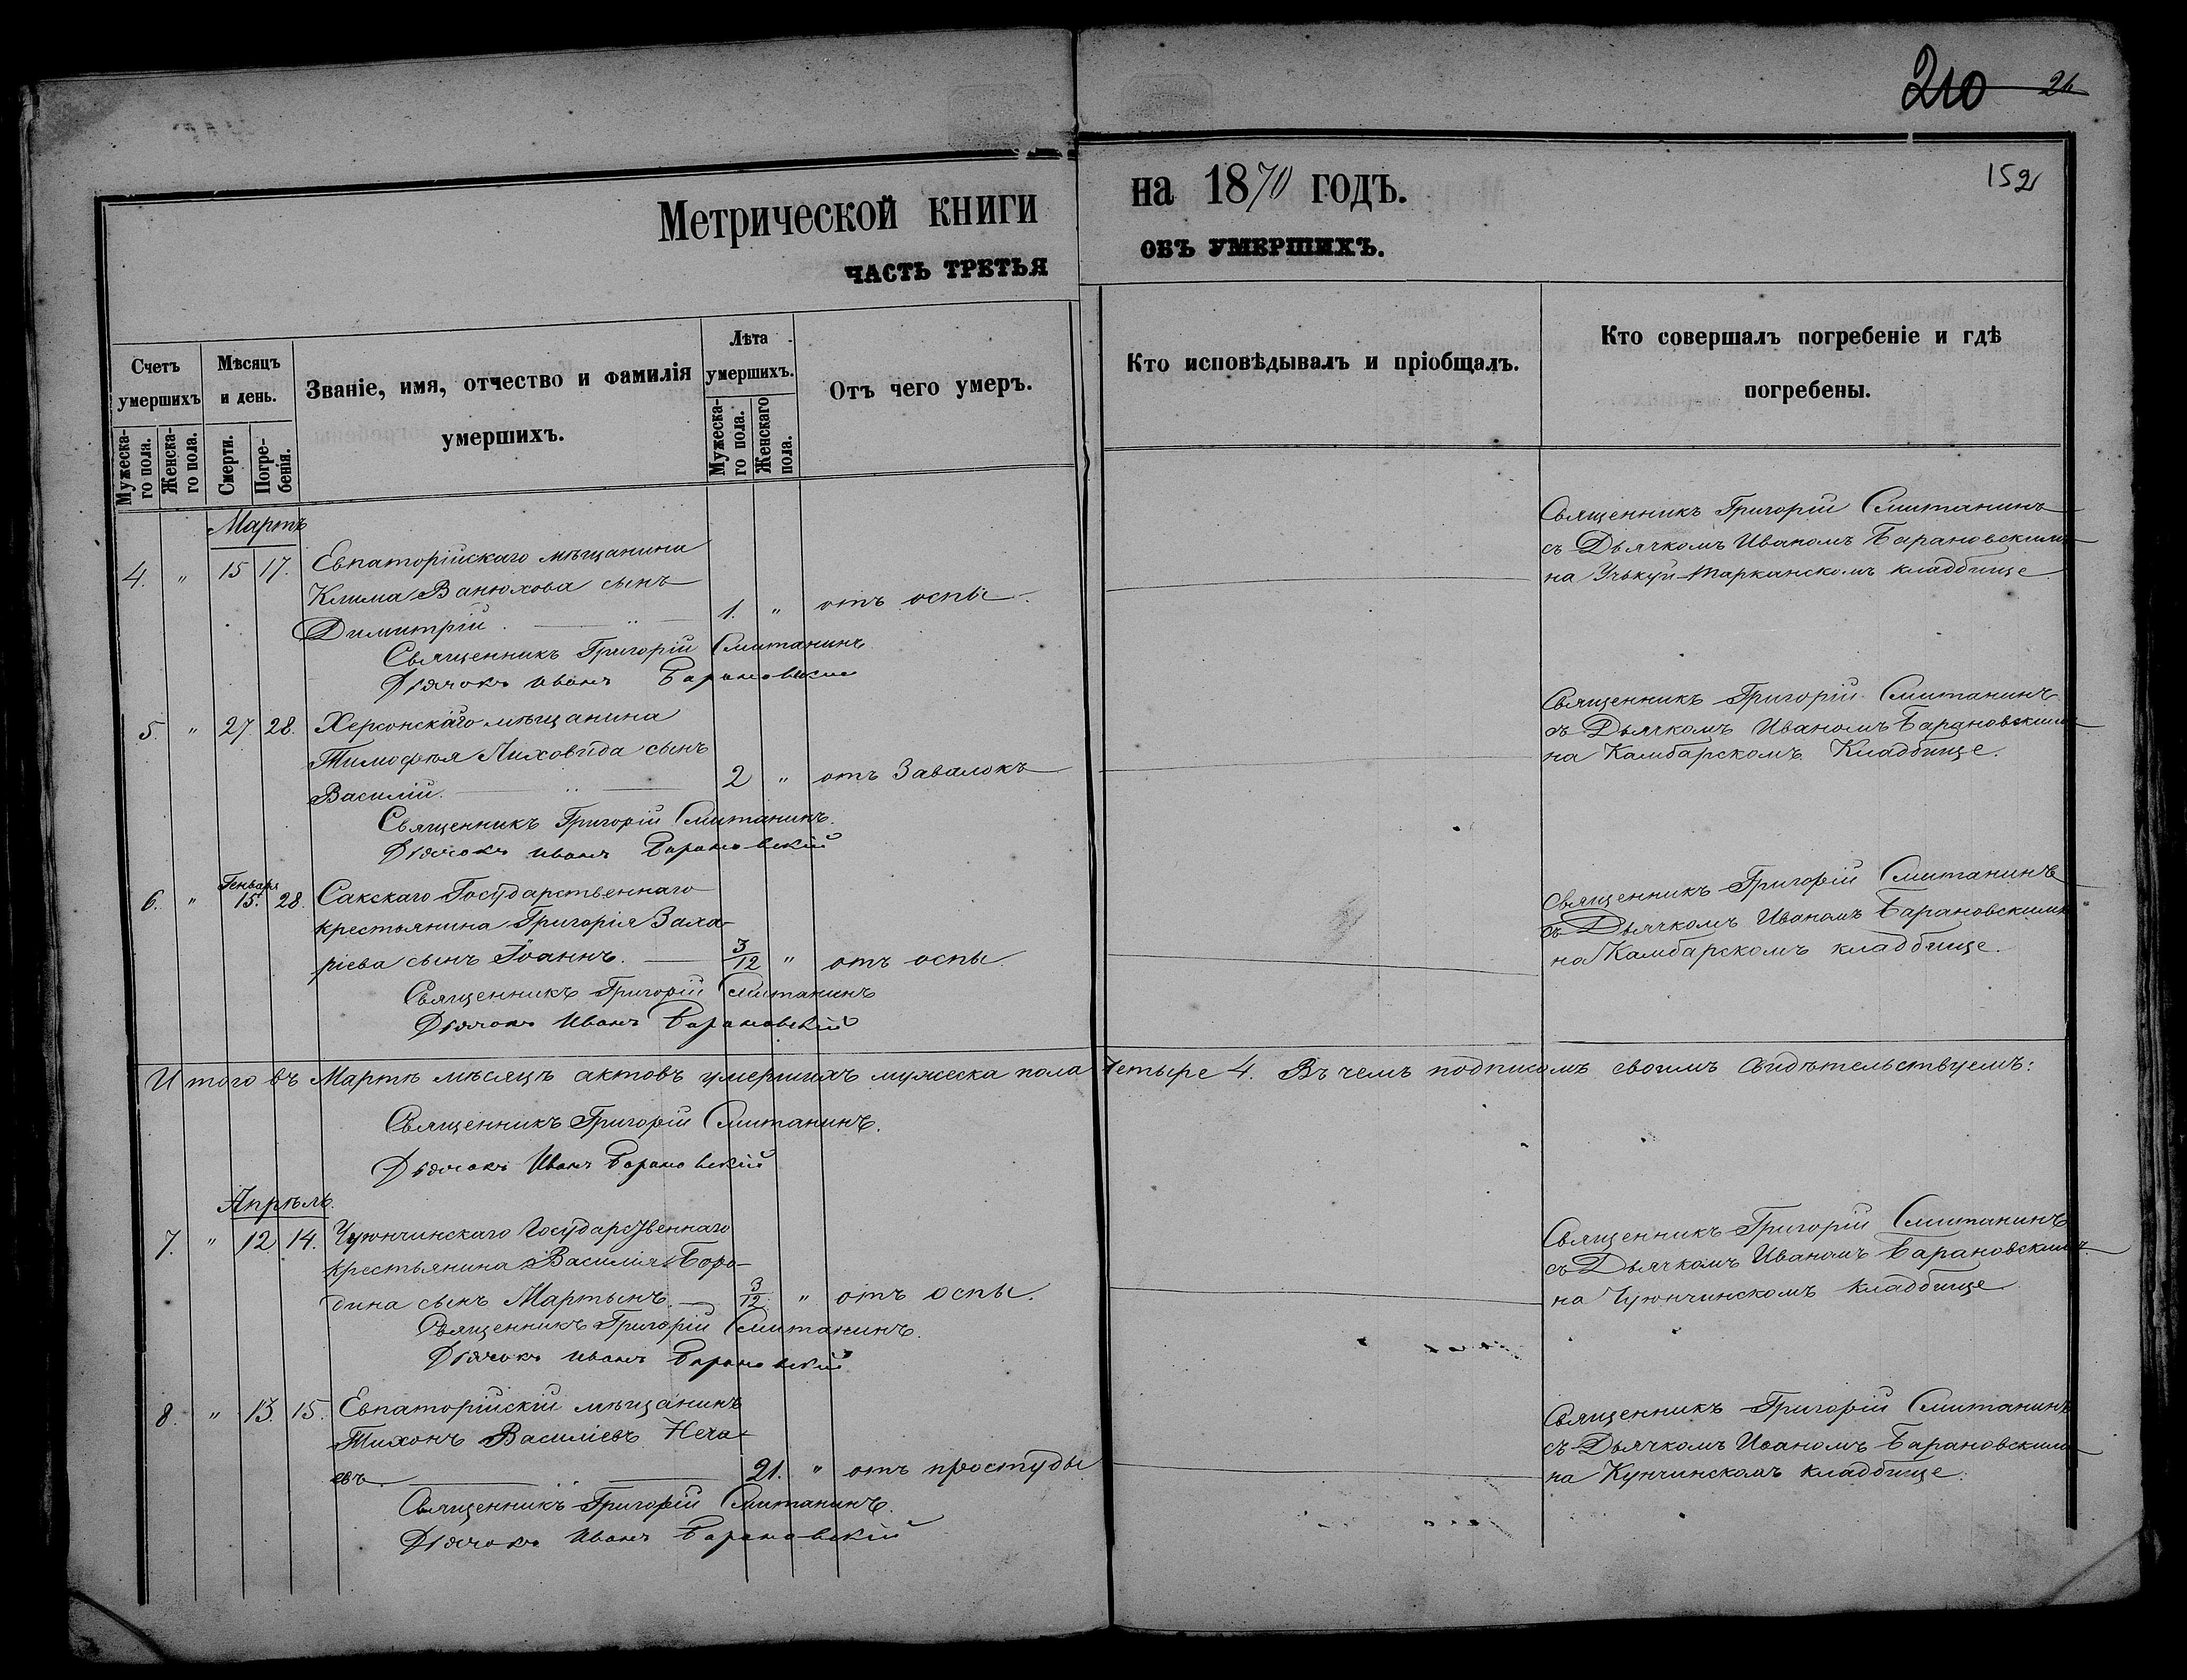 210 26
152
Метрической книги на 1870 годъ.
ЧАСТЬ ТРЕТЬЯ ОБЪ УМЕРШИХЪ.
Счетъ умершихъ
Мужеска-го пола.
Женска-го пола.
Мѣсяцъ и день.
Смерти.
Погре-бенія.
Званіе, имя, отчество и фамилія
умершихъ.
Лѣта умершихъ.
Мужеска-го пола.
Женскаго пола.
Отъ чего умеръ.
Кто исповѣдывалъ и пріобщалъ.
Кто совершалъ погребеніе и гдѣ
погребены.
Мартъ
4. " 15 17. Евпаторійскаго мѣщанина
Клима Ванюхова сынъ
Димитрій. 1. " отъ оспы.
Священникъ Григорій Смитанинъ
съ Дьячкомъ Иваномъ Барановскимъ
на Учькуй-Тарканскомъ кладбище
Священникъ Григорій Смитанинъ
Дьячокъ Иванъ Барановскій
5. " 27 28. Херсонскаго мѣщанина
Тимофѣя Лиховида сынъ
Василій. 2 " отъ Завалокъ
Священникъ Григорій Смитанинъ
съ Дьячкомъ Иваномъ Барановскимъ
на Камбарскомъ Кладбище.
Священникъ Григорій Смитанинъ.
Дьячокъ Иванъ Барановскій
6. " Генваря 15. 28. Сакскаго Государственнаго
крестьянина Григорія Заха-
ріева сынъ Іоаннъ. 3/12 " отъ оспы.
Священникъ Григорій Смитанинъ
съ Дьячкомъ Иваномъ Барановскимъ
на Камбарскомъ кладбище.
Священникъ Григорій Смитанинъ
Дьячокъ Иванъ Барановскій
Итого въ Мартѣ мѣсяцѣ актовъ умершихъ мужеска пола Четыре 4. Въ чемъ подписомъ своимъ свидѣтельствуемъ:
Священникъ Григорій Смитанинъ.
Дьячокъ Иванъ Барановскій
Апрѣль.
7. " 12 14. Чуюнчинскаго Государственнаго
крестьянина Василія Боро-
дина сынъ Мартынъ. 3/12 " отъ оспы.
Священникъ Григорій Смитанинъ
съ Дьячкомъ Иваномъ Барановскимъ
на Чуюнчинскомъ кладбище
Священникъ Григорій Смитанинъ.
Дьячокъ Иванъ Барановскій
8. " 13. 15. Евпаторійскій мѣщанинъ
Тихонъ Василіевъ Неча-
евъ 21. " отъ простуды
Священникъ Григорій Смитанинъ
съ Дьячкомъ Иваномъ Барановскимъ
на Кунчинскомъ кладбище.
Священникъ Григорій Смитанинъ.
Дьячокъ Иванъ Барановскій